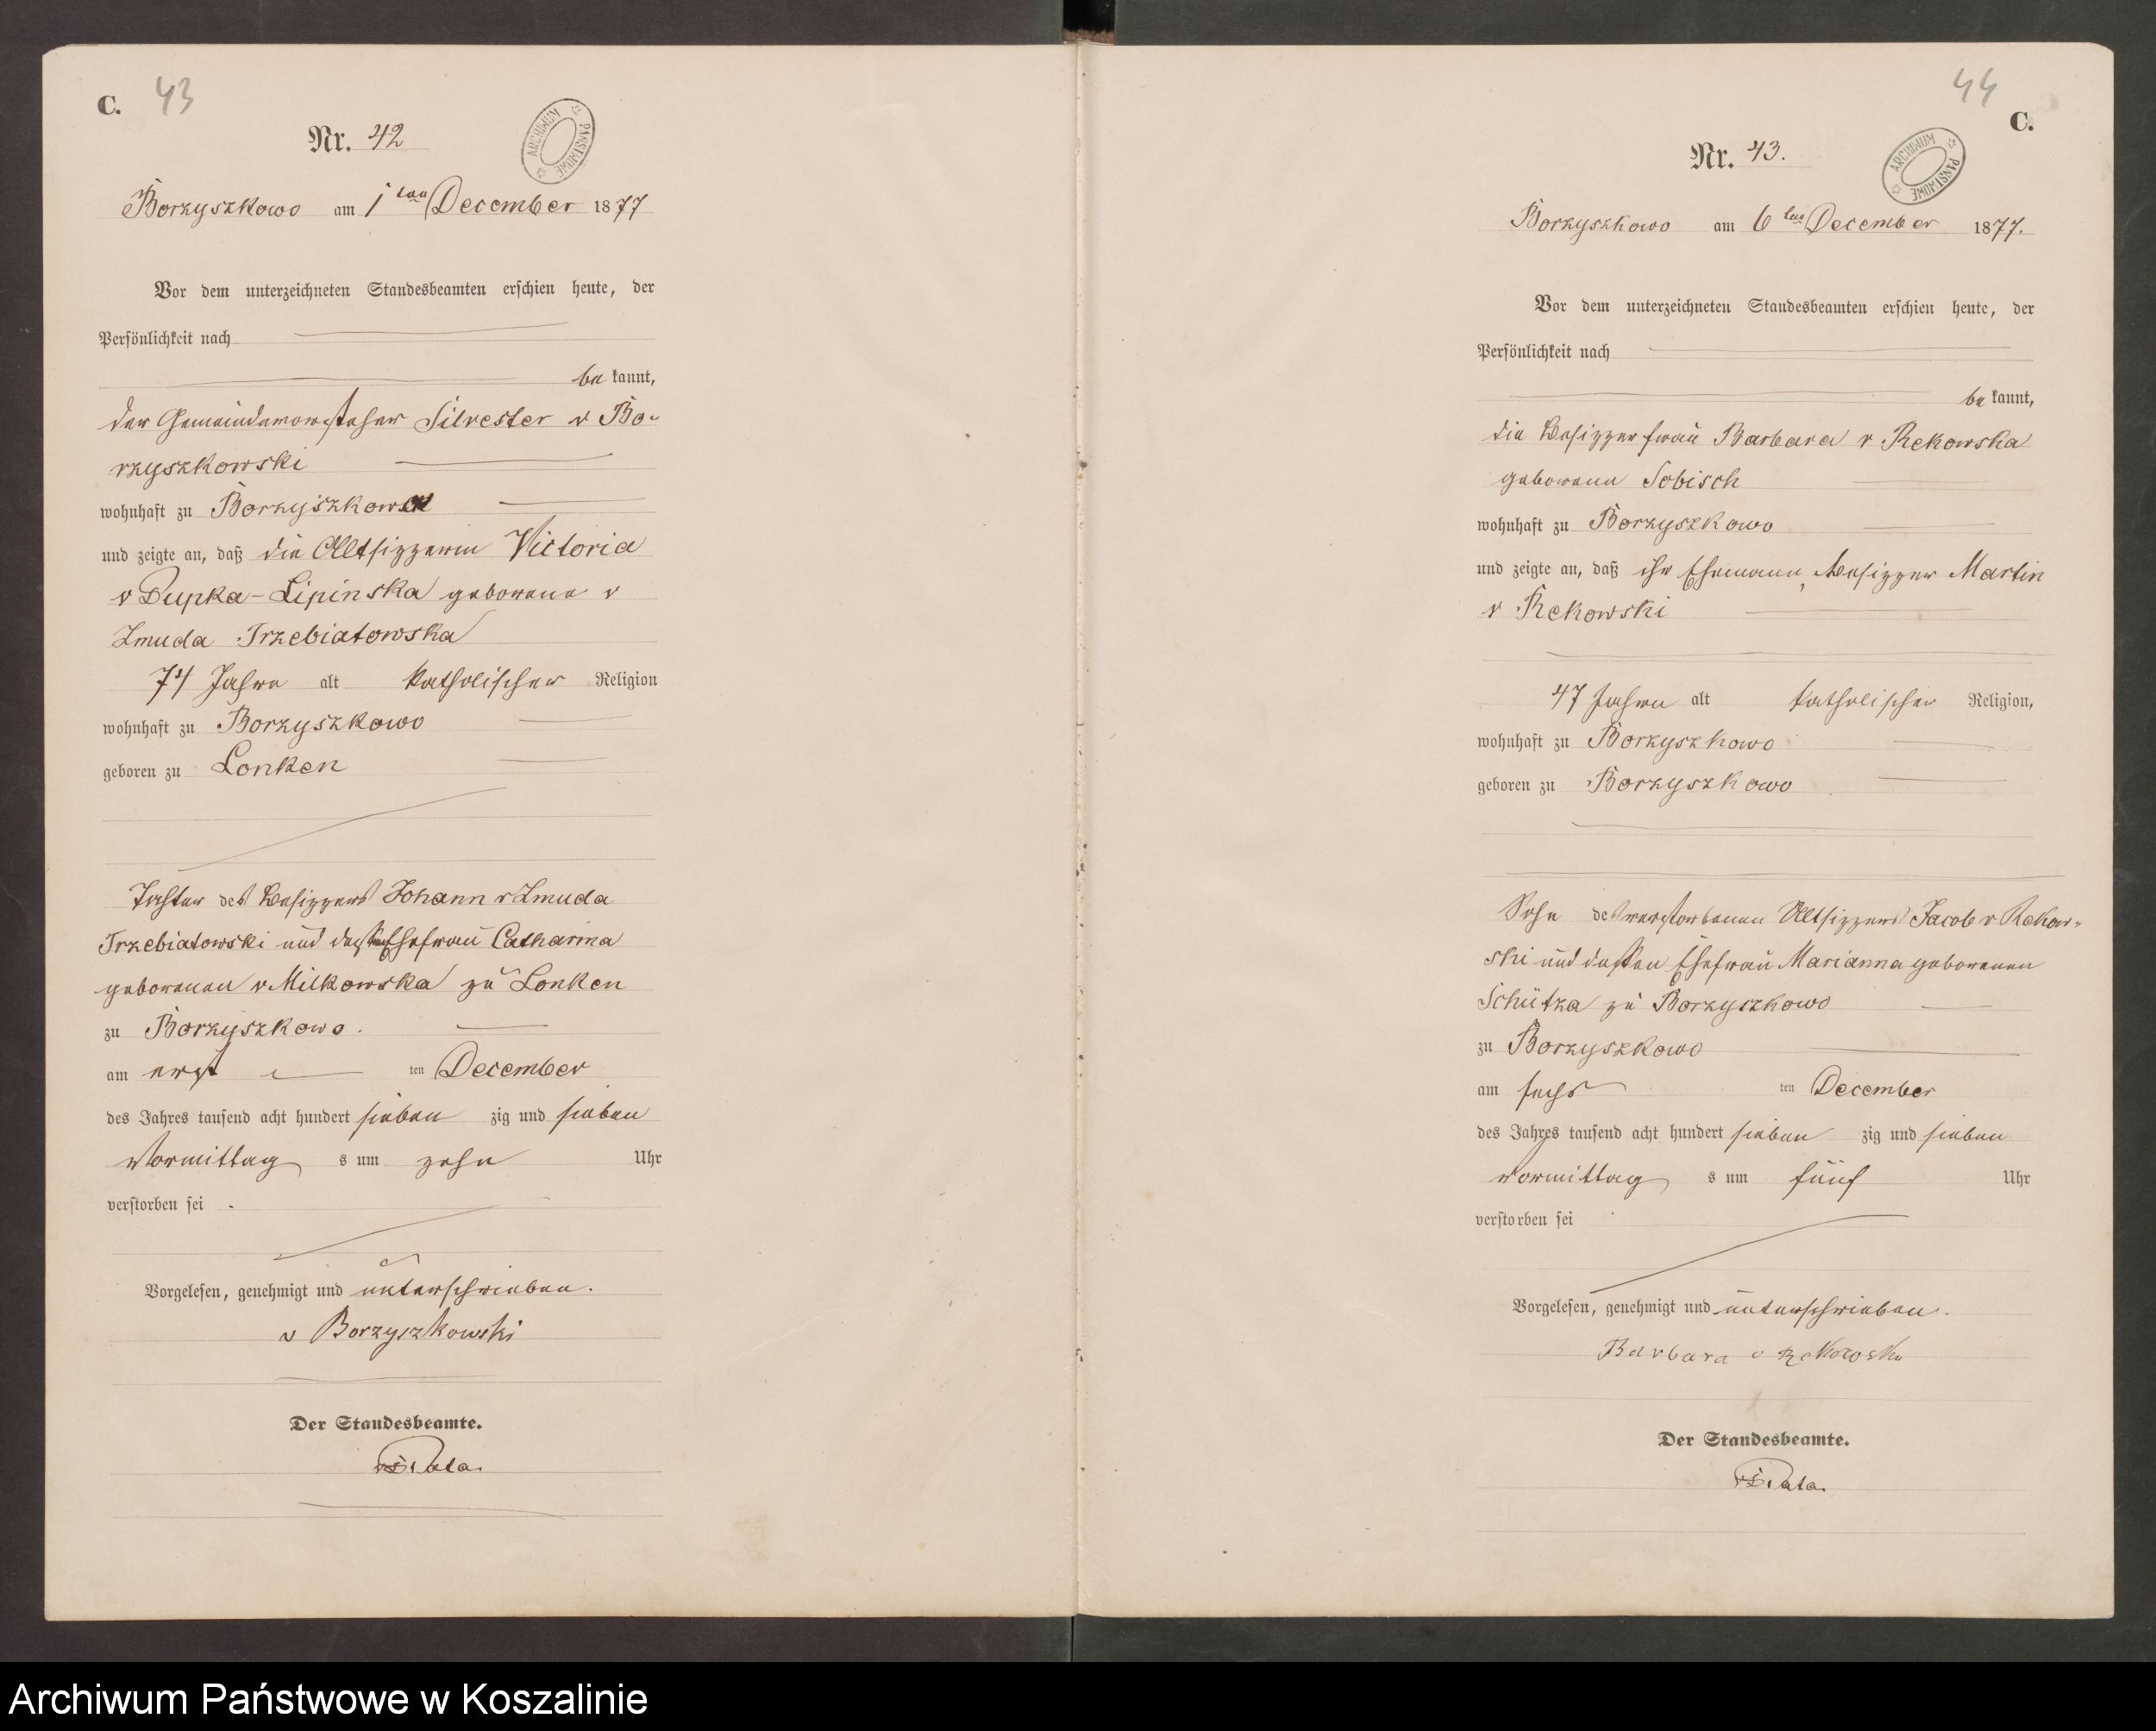 C. 43
Nr. 42
ARCHIWUM PAŃSTWOWE
Borzyszkowo am 1ten December 1877
Vor dem unterzeichneten Standesbeamten erschien heute, der
Persönlichkeit nach
be kannt,
der Gemeindevorsteher Silvester v Bo-
rzyszkowski
wohnhaft zu Borzyszkowo
und zeigte an, daß die Altsitzerin Victoria
v Dupka-Lipinska geborene v
Zmuda Trzebiatowska
74 Jahre alt katholischer Religion
wohnhaft zu Borzyszkowo
geboren zu Lonken
Tochter des Besitzers Johann v Zmuda
Trzebiatowski und dessen Ehefrau Catharina
geborenen v Milkowska zu Lonken
zu Borzyszkowo.
am erst ten December
des Jahres tausend acht hundert sieben zig und sieben
Vormittag s um zehn Uhr
verstorben sei
Vorgelesen, genehmigt und unterschrieben.
v Borzyszkowski
Der Standesbeamte.
44
C.
Nr. 43.
ARCHIWUM PAŃSTWOWE
Borzyszkowo am 6ten December 1877.
Vor dem unterzeichneten Standesbeamten erschien heute, der
Persönlichkeit nach
be kannt,
die Besitzerfrau Barbara v Rekowska
geborene Sobisch
wohnhaft zu Borzyszkowo
und zeigte an, daß ihr Ehemann, Besitzer Martin
v Rekowski
47 Jahre alt katholischer Religion,
wohnhaft zu Borzyszkowo
geboren zu Borzyszkowo
Sohn des verstorbenen Altsitzers Jacob v Rekow-
ski und dessen Ehefrau Marianna geborenen
Schütza zu Borzyszkowo
zu Borzyszkowo
am sechs ten December
des Jahres tausend acht hundert sieben zig und sieben
Vormittag s um fünf Uhr
verstorben sei
Vorgelesen, genehmigt und unterschrieben.
Barbara v Rekowska
Der Standesbeamte.
Archiwum Państwowe w Koszalinie